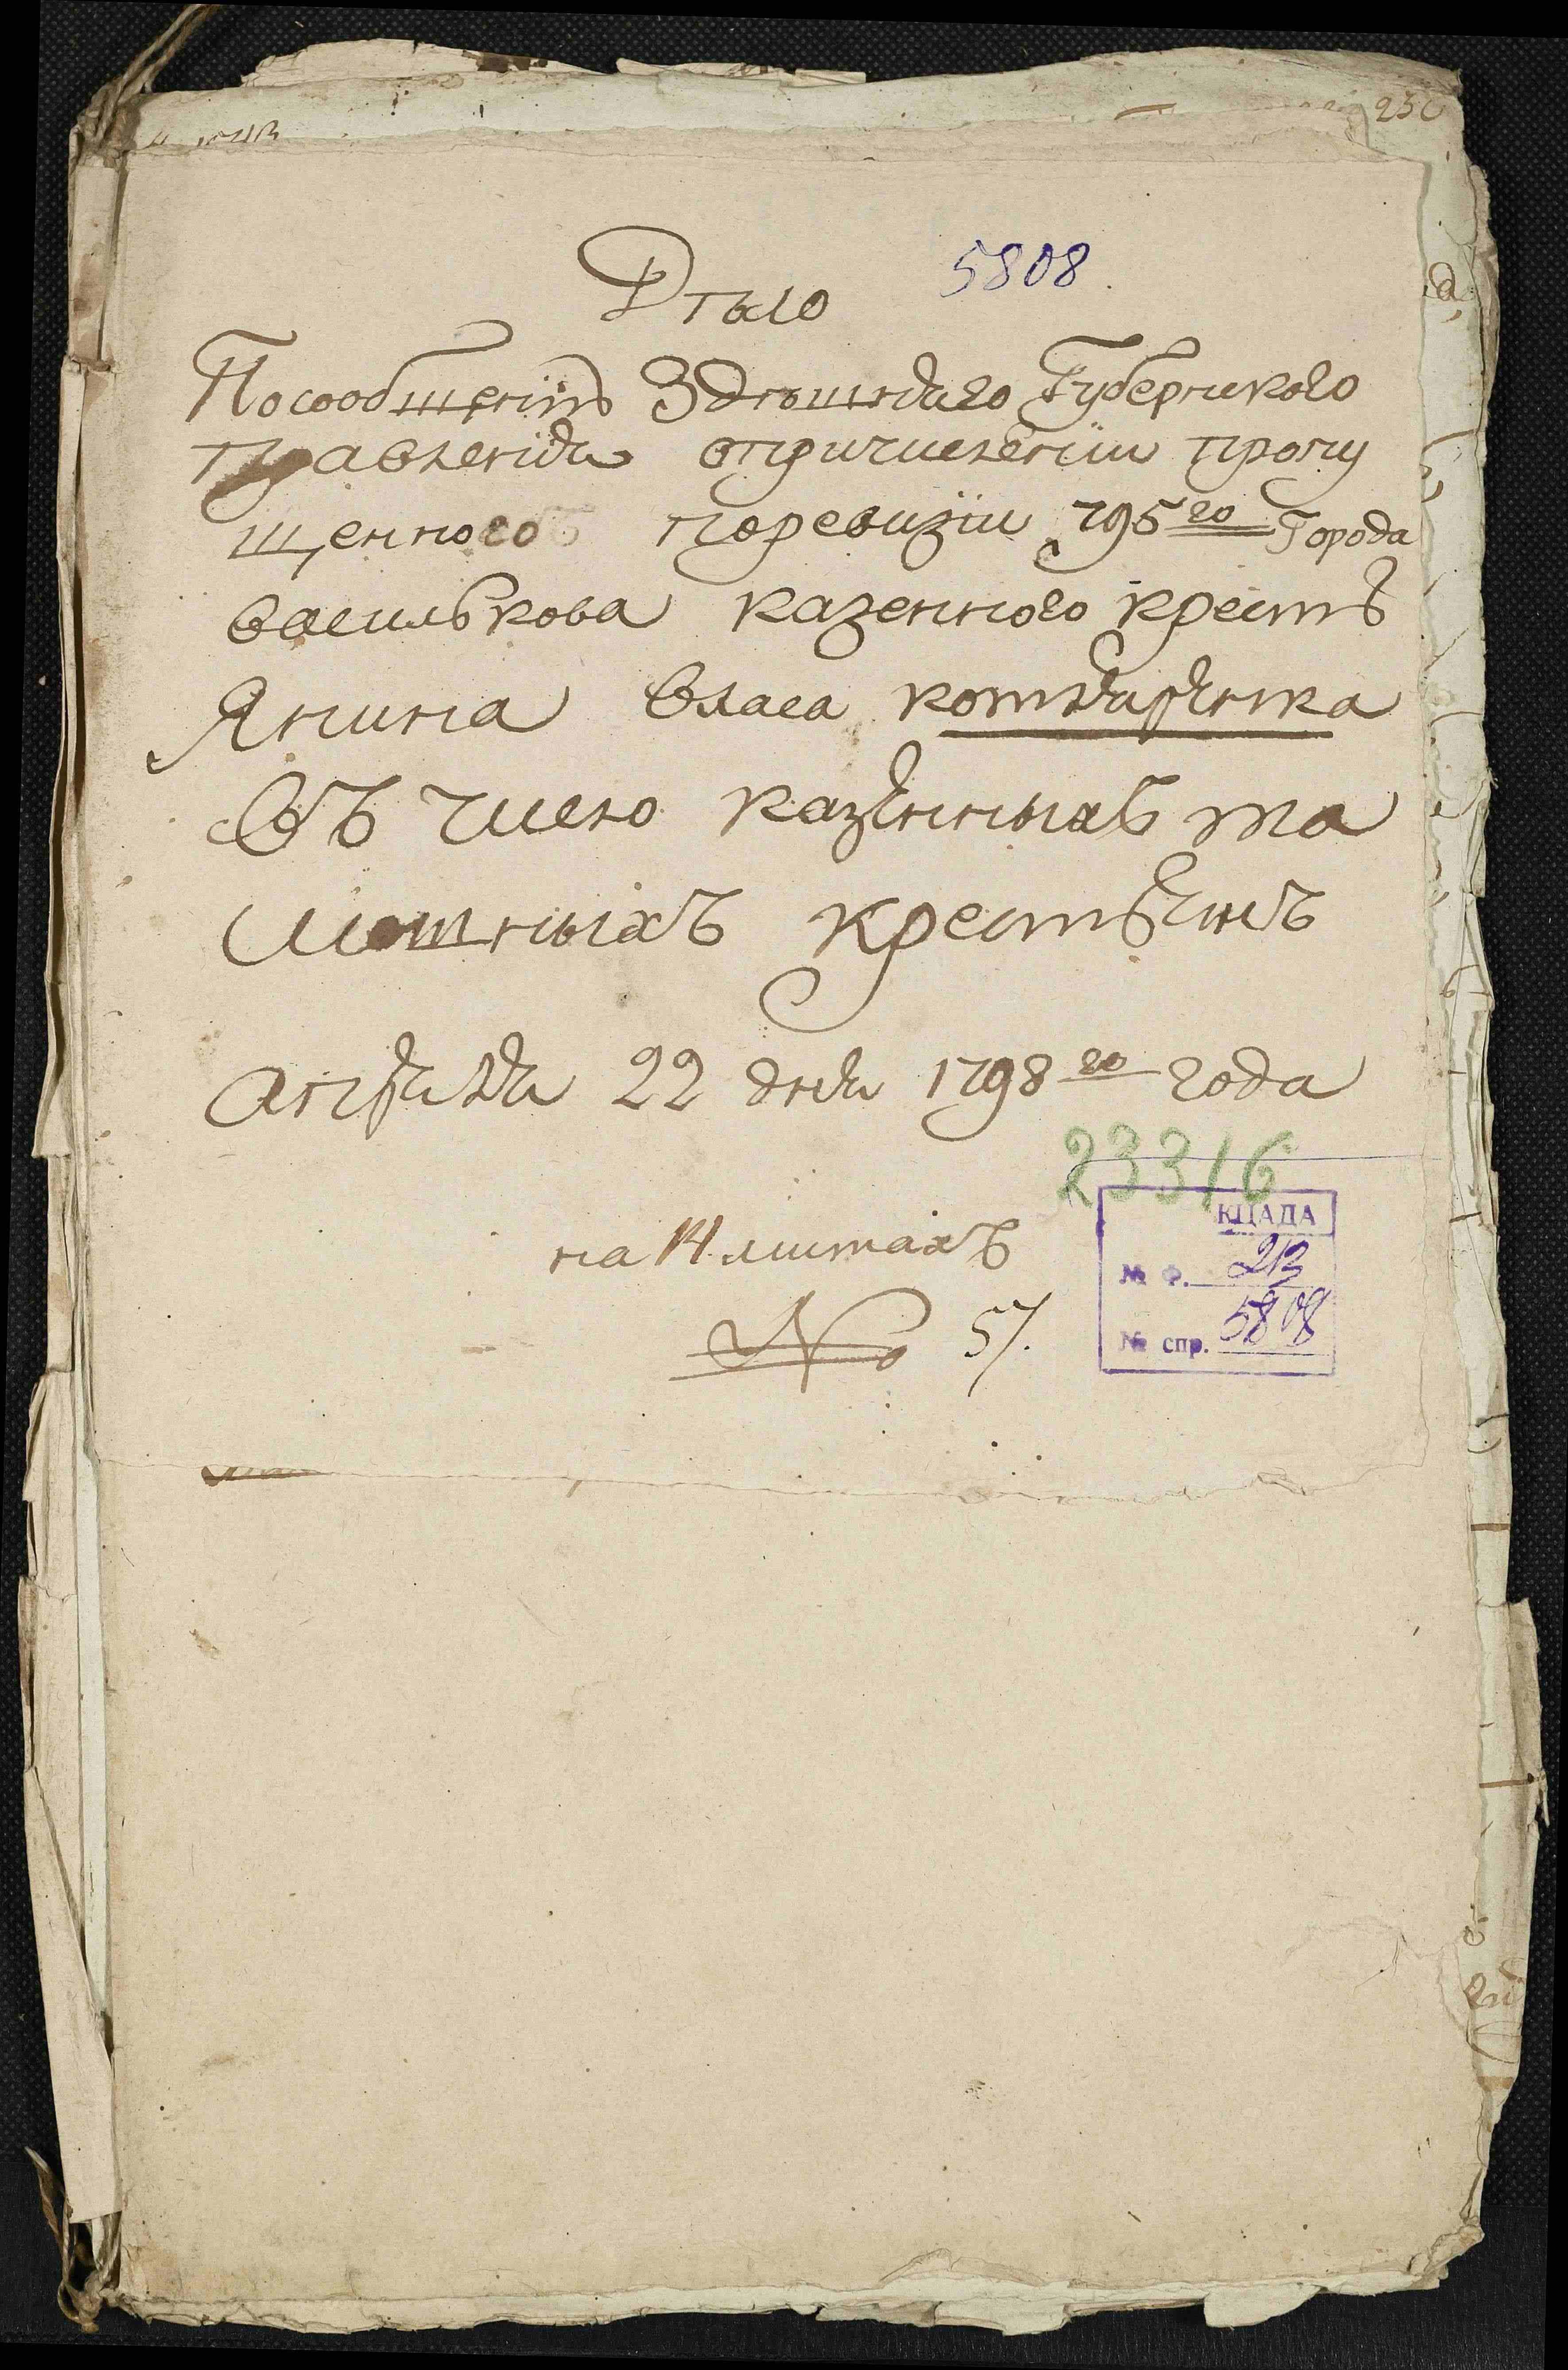 230
Дѣло 5808.
По сообщенію Здѣшняго Губернского
правленія опричисленіи пропу
щенного поревизіи 795го Города
василькова казенного крестъ
Янина власа котляренка
въ число казенныхъ та
мотныхъ крестьянъ
апреля 22 дня 1798го года
23316
на 14 листахъ
КЦАДА
№ Ф. 213
№ спр. 5808
№ 57.